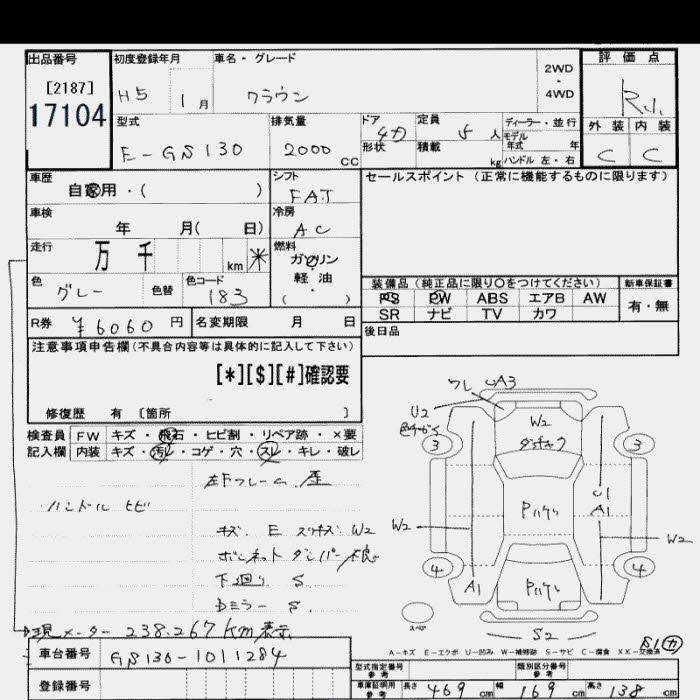 出品番号 初度登録年月 車名・グレード 評価点
[2187] H5 1月 クラウン 2WD・4WD
17104
型式 排気量 ドア 4 定員 5人 ディーラー・並行
E-GS130 2000cc 形状 積載 kg モデル年式 年
ハンドル 左・右
外装 内装
C C
車歴 自家用・( ) シフト FAT
セールスポイント(正常に機能するものに限ります)
車検 年 月( 日) 冷房 AC
走行 万 千 km * 燃料 ガソリン・軽油・( )
色 グレー 色替 色コード 183
装備品(純正品に限り○をつけてください) 新車保証書
PS PW ABS エアB AW 有・無
SR ナビ TV カワ
R券 ¥6060円 名変期限 月 日 後日品
注意事項申告欄(不具合内容等は具体的に記入して下さい)
[*][$][#]確認要
修復歴 有 [箇所 ]
検査員 FW キズ・飛石・ヒビ割・リペア跡・×要
記入欄 内装 キズ・汚レ・コゲ・穴・スレ・キレ・破レ
左Fフレーム 歪
ハンドル ヒビ
キズ E スリキズ W2
ボンネットダンパー不良
下廻り S
Dミラー S
現メーター 238.267km表示
車台番号 GS130-1011284
登録番号
ワレ A3
U2
W2
3
3
U1
A1
W2
W2
4
4
A1
スペア
S2
A-キズ E-エクボ U-凹み W-補修跡 S-サビ C-腐食 XX-交換済
型式指定番号 類別区分番号
車庫証明用参考 長さ 469cm 幅 169cm 高さ 138cm